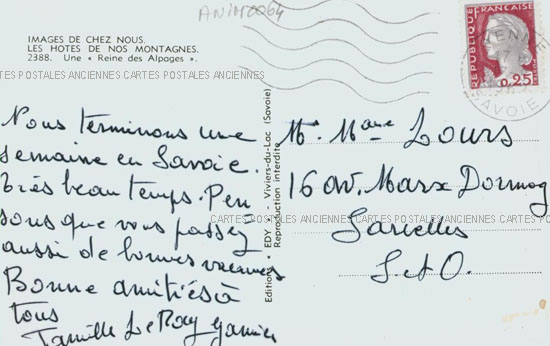 ANIM0064
IMAGES DE CHEZ NOUS.
LES HOTES DE NOS MONTAGNES.
2388. Une « Reine des Alpages ».
CARTES POSTALES ANCIENNES CARTES POSTALES ANCIENNES
Nous terminons une
semaine en Savoie.
très beau temps. Pen
sons que vous passez
aussi de bonnes vacances
Bonne amitiés à
tous
Famille Le Roy
Editions EDY - Viviers-du-Lac (Savoie)
Reproduction interdite
REPUBLIQUE FRANÇAISE
0,25
SAVOIE
Mr. Mme Lours
16 av. Marx Dormoy
CARTES POSTALES ANCIENNES CARTES POSTALES ANCIENNES
Sarcelles
S. et O.